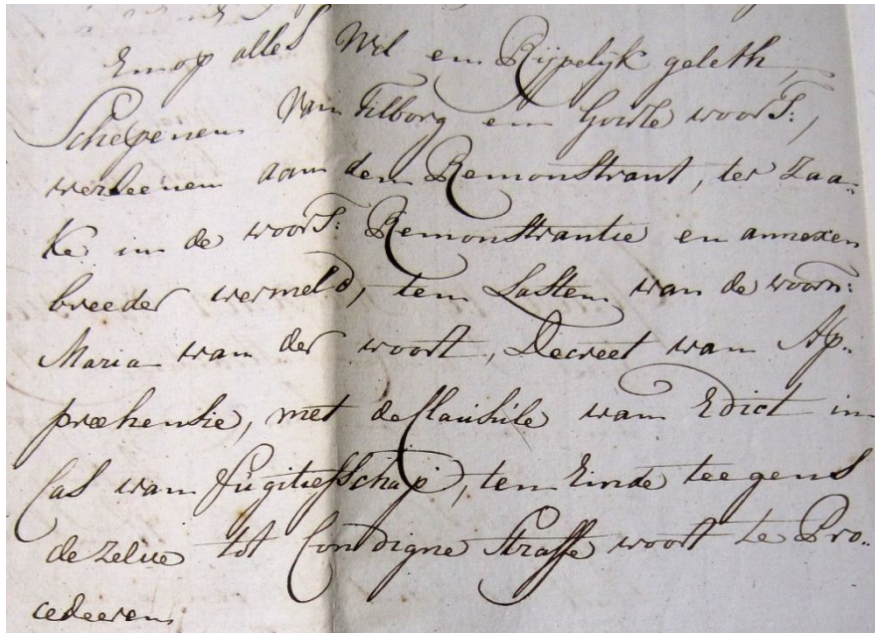 En op alles Wel en Rijpelijk geleth,
Schepenen Van Tilborg en Goirle voors:,
verleenen aan den Remonstrant, ter Zaa:
ke in de voors: Remonstrantie en annexen
breeder vermeld, ten Lasten van de voorn:
Maria van der voort, Decreet van Ap:
præhensie, met de Clausule van Edict in
Cas van fugitiefschap, ten Einde teegens
dezelve tot Condigne Straffe voort te Pro:
cedeeren